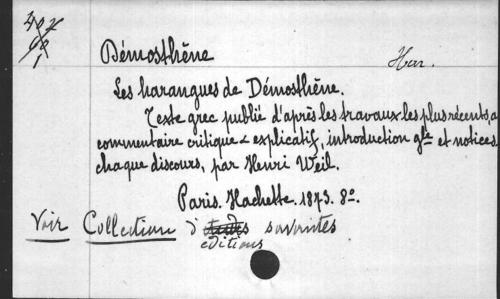 Démosthène
Les harangues de Démosthène.
Texte grec publié d'après les travaux les plus récents, a
commentaire critique & explicatif, introduction gle et notices
chaque discours, par Henri Weil.
Paris. Hachette. 1873. 8o.
Voir Collection d'études savantes
editions